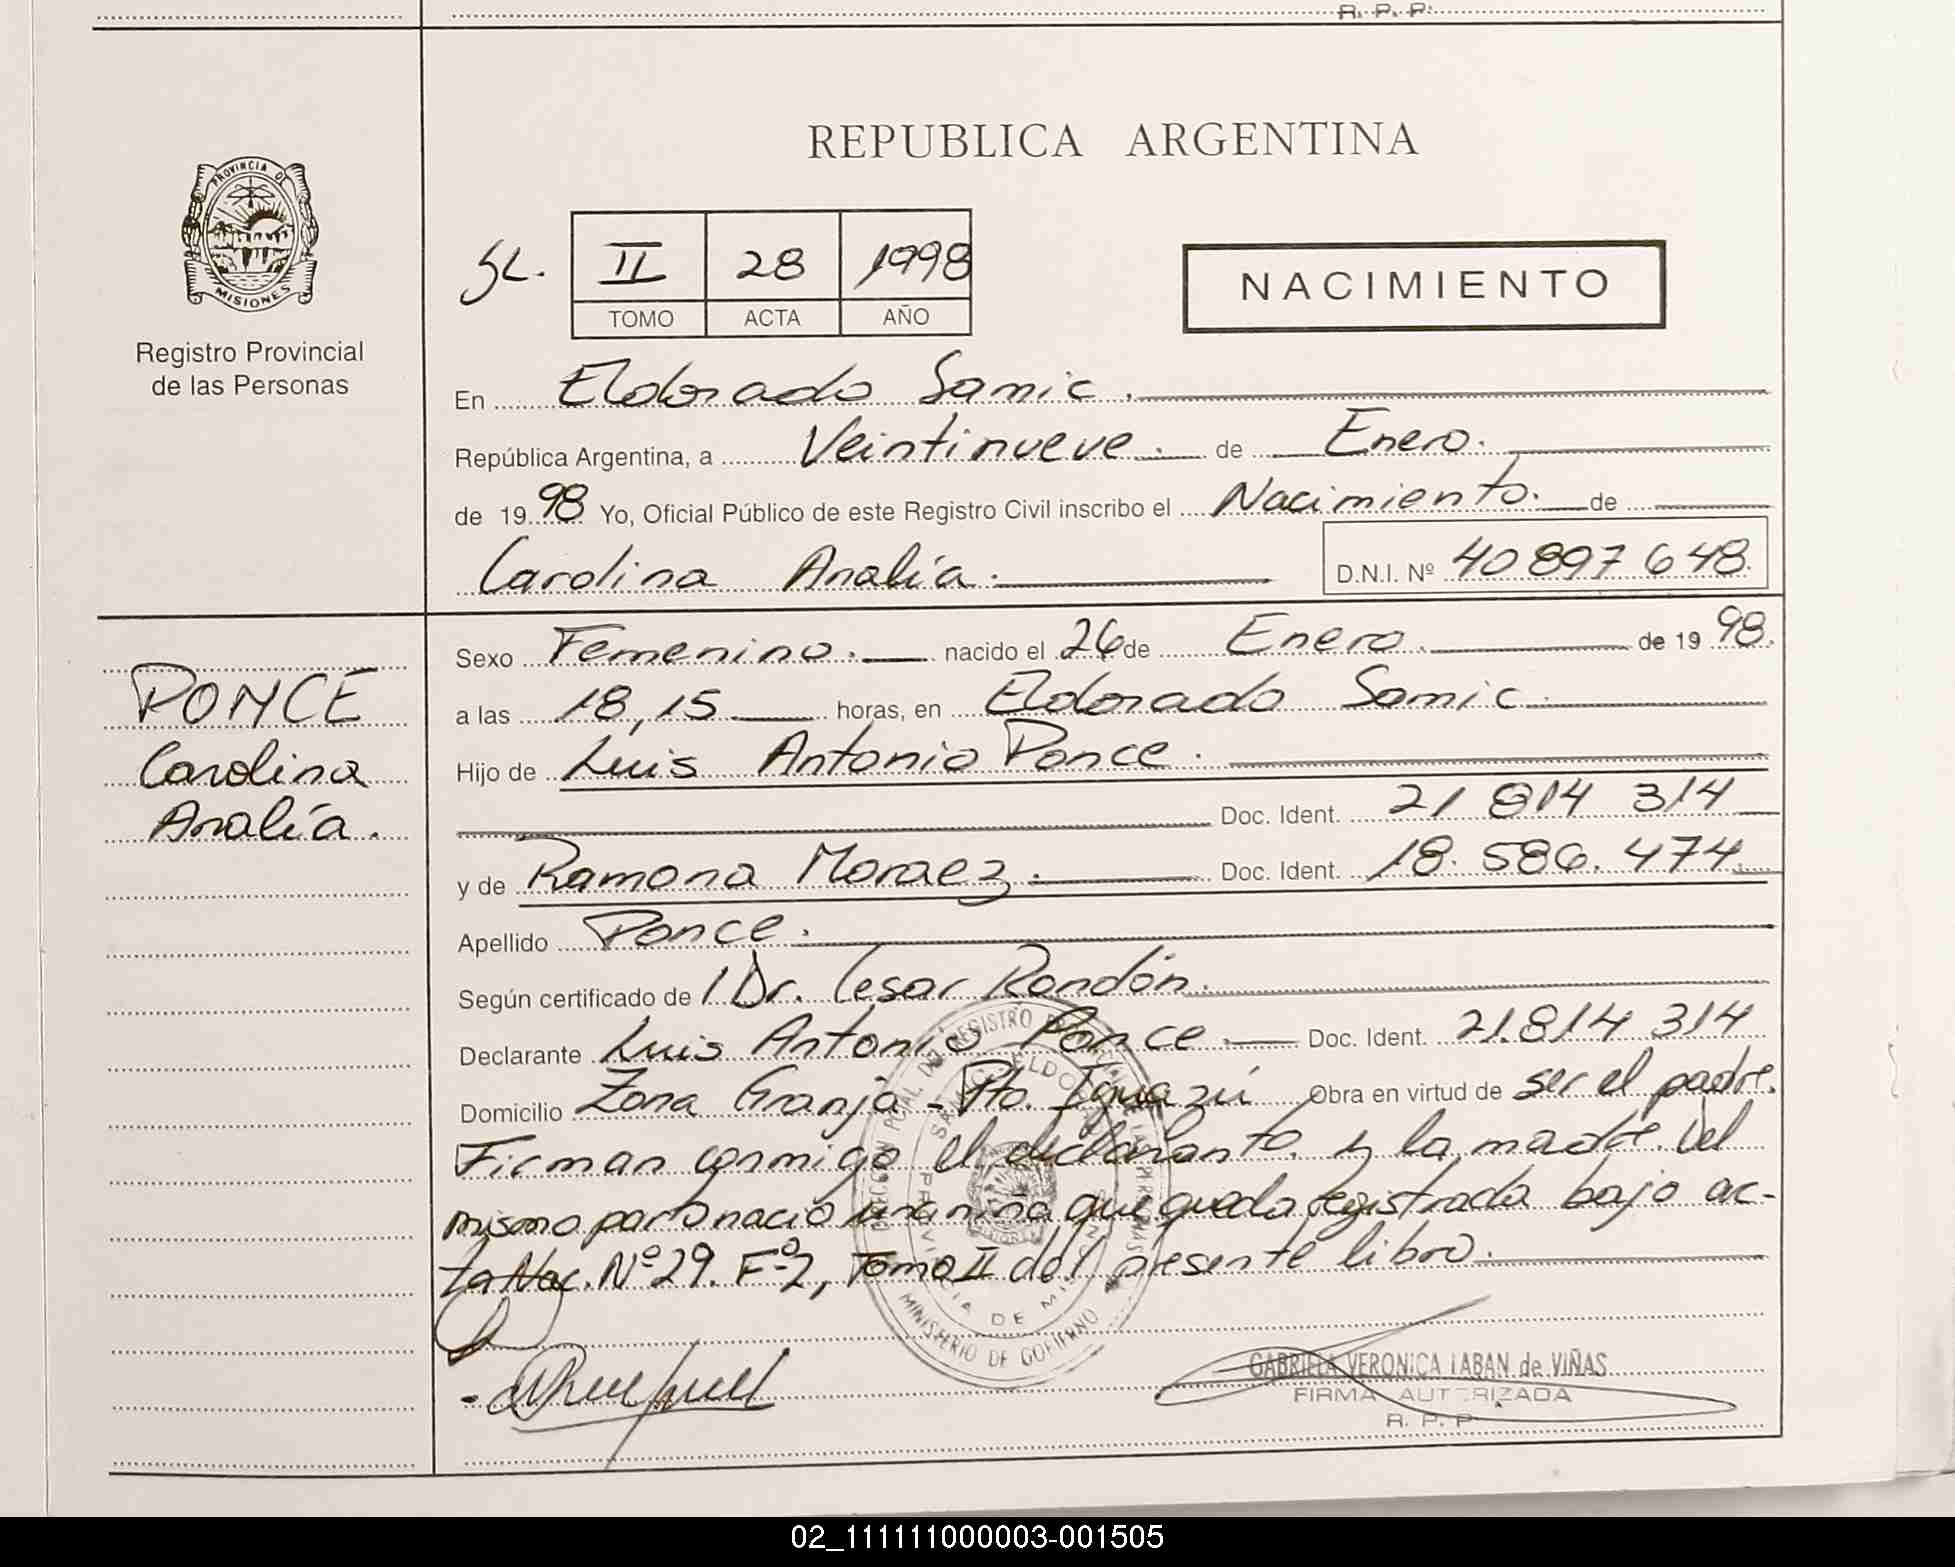 R. P. P.
REPUBLICA ARGENTINA
PROVINCIA DE
MISIONES
Registro Provincial
de las Personas
SL. II 28 1998
TOMO ACTA AÑO
NACIMIENTO
En Eldorado Samic.
República Argentina, a Veintinueve. de Enero.
de 1998 Yo, Oficial Público de este Registro Civil inscribo el Nacimiento. de
Carolina Analía. D.N.I. Nº 40 897 648.
PONCE
Carolina
Analía.
Sexo Femenino. nacido el 26 de Enero. de 1998.
a las 18,15 horas, en Eldorado Samic.
Hijo de Luis Antonio Ponce.
Doc. Ident. 21 814 314
y de Ramona Moraez. Doc. Ident. 18.586.474
Apellido Ponce.
Según certificado de Dr. Cesar Rondón.
Declarante Luis Antonio Ponce Doc. Ident. 21.814 314
Domicilio Zona Granja - Pto. Iguazú Obra en virtud de ser el padre.
Firman conmigo el declarante. y la madre. Del
mismo parto nació una niña que queda registrada bajo ac-
ta Nac. Nº 29. Fº 2, Tomo II del presente libro.
MINISTERIO DE GOBIERNO
PROVINCIA DE MISIONES
GABRIELA VERONICA LABAN de VIÑAS
FIRMA AUTORIZADA
R. P. P
02_111111000003-001505